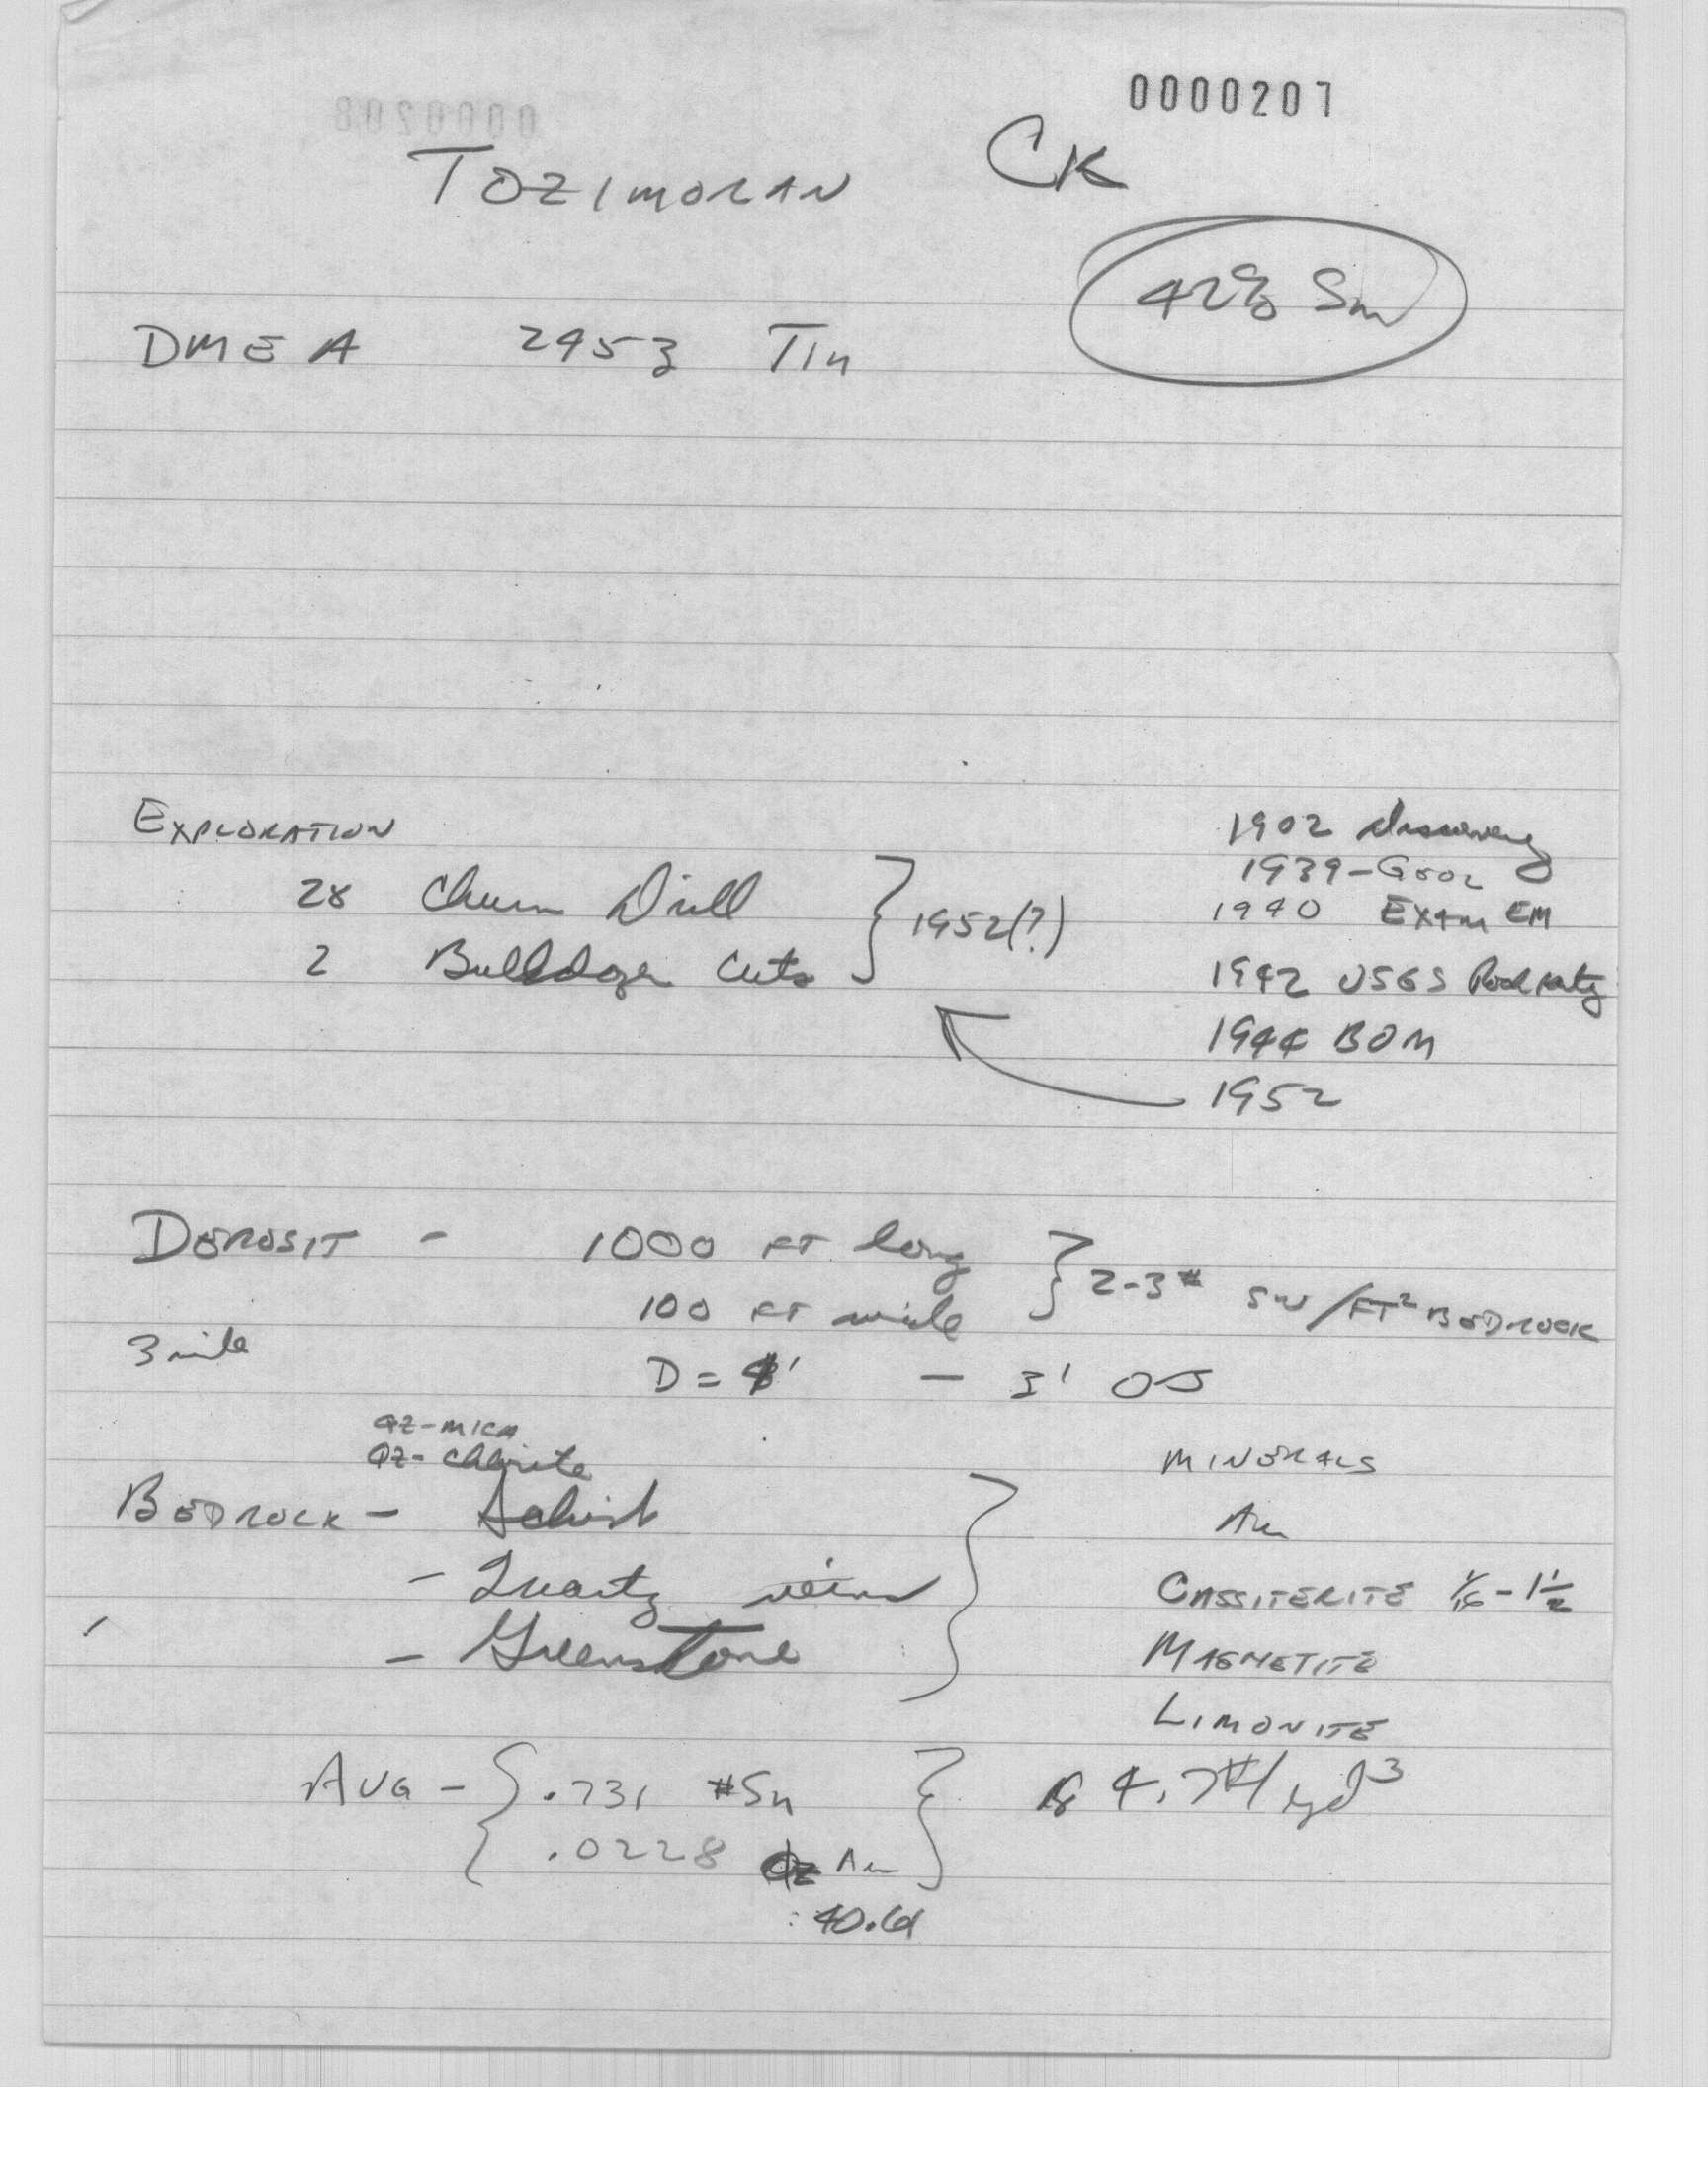 0000207
TOZIMORAN CK
42% Sn
DMEA 2953 Tin
EXPLORATION
28 Churn Drill
2 Bulldozer Cuts
} 1952(?)
1902 discovery
1939-GEOL
1940 EXAM EM
1942 USGS
1944 BOM
1952
DEPOSIT - 1000 FT long
100 FT wide
} 2-3# SN/FT² BEDROCK
3 mile
D = ' - 3' OB
QZ-MICA
QZ-chlorite
BEDROCK - Schist
- Quartz veins
- Greenstone
MINERALS
Au
CASSITERITE 1/16 - 1 1/2
MAGNETITE
LIMONITE
AVG - { .731 #Sn
.0228 oz Au
} 4.7#/yd³